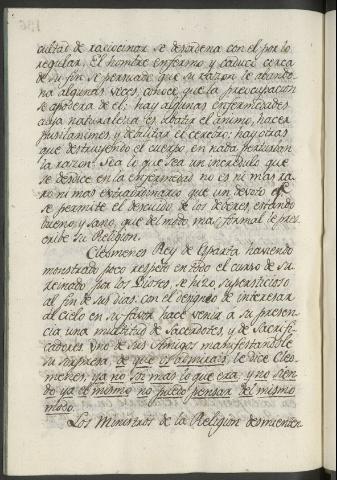 cultad de raciocinar se desordena con el por lo
regular. El hombre enfermo y caduco cerca
de su fin se persuade que su razon le abando-
na algunas veces, conoce que la preocupacion
se apodera de el; hay algunas enfermedades
cuya naturaleza es abatir el animo, hacer
pusilanimes, y debilitar el cerebro; hay otras
que destruyendo el cuerpo, en nada perturban
la razon. Sea lo que sea un incredulo que
se desdice en la enfermedad no es ni mas ra-
ro ni mas extraordinario que un devoto qe
se permite el descuido de los deberes, estando
bueno y sano, que del modo mas formal le pres-
cribe su Religion.
Cleomenes Rey de Esparta haviendo
monstrado poco respeto en todo el curso de su
Reinado por los Dioses, se hizo supersticioso
al fin de sus dias: con el designio de interesar
al Cielo en su favor hace venir a su presen-
cia una multitud de Sacerdotes, y de Sacrifi-
cadores. Uno de sus Amigos manifestandole
su sorpresa: de que os admirais, le dice Cleo-
menes; ya no soi mas lo que era, y no sien-
do ya el mismo no puedo pensar del mismo
modo.
Los Ministros de la Religion desmienten